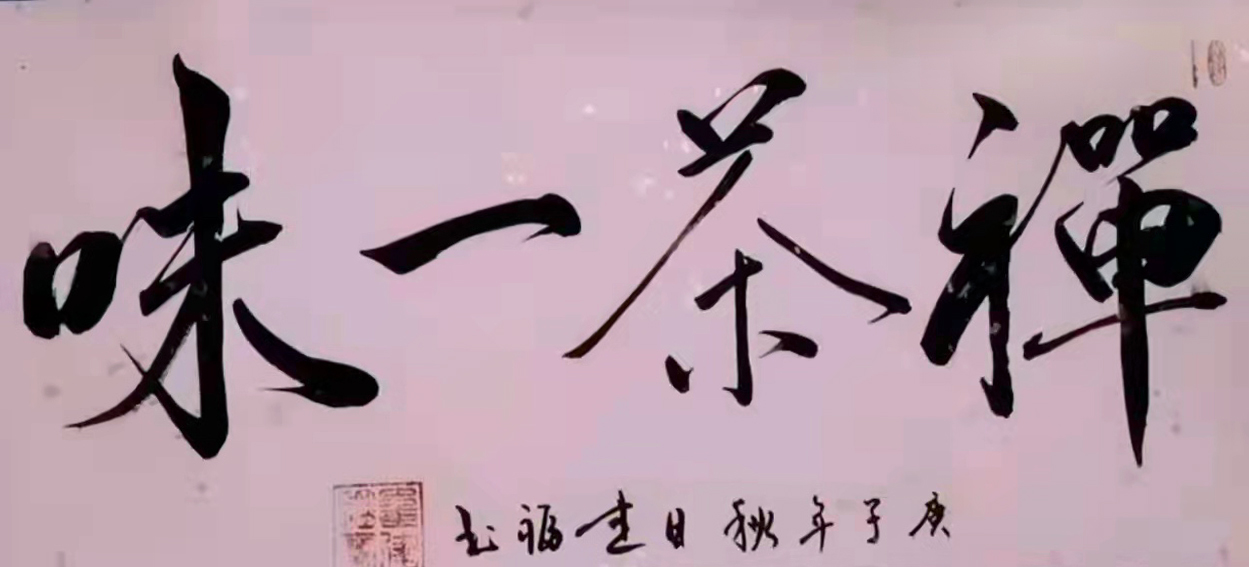 禪茶一味
庚子年秋日建福书